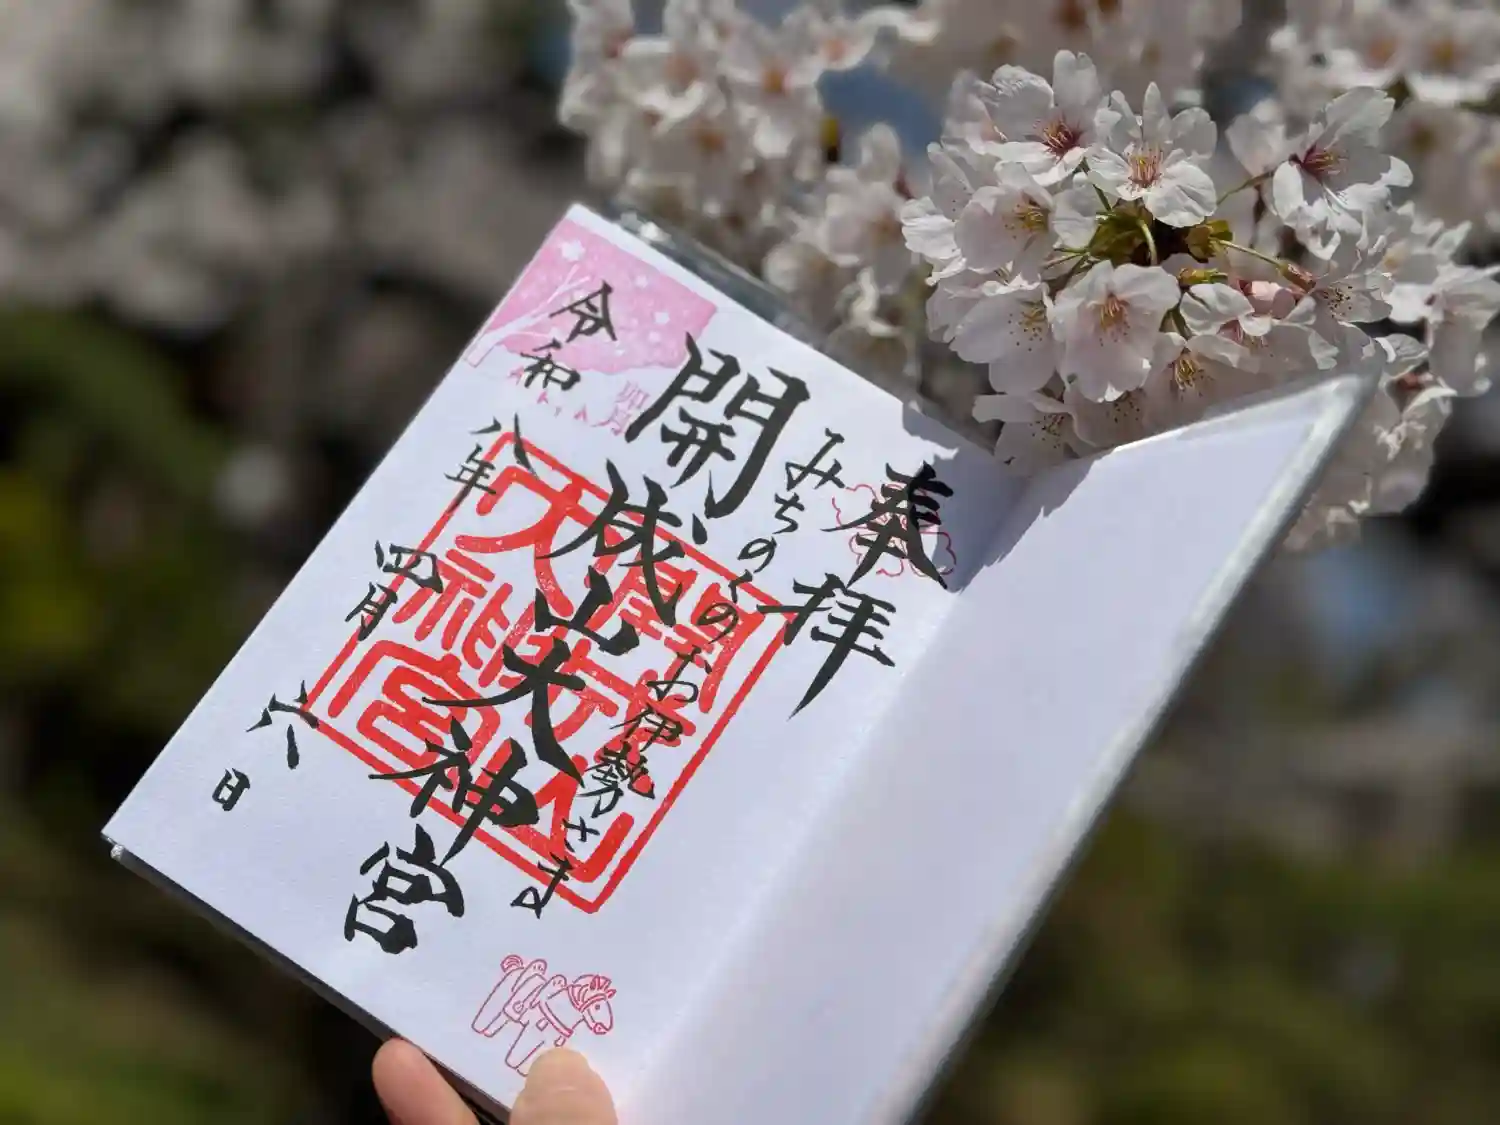 奉拝
みちのくのお伊勢さま
開成山大神宮
令和八年四月六日
卯月
April
開成山
大神宮